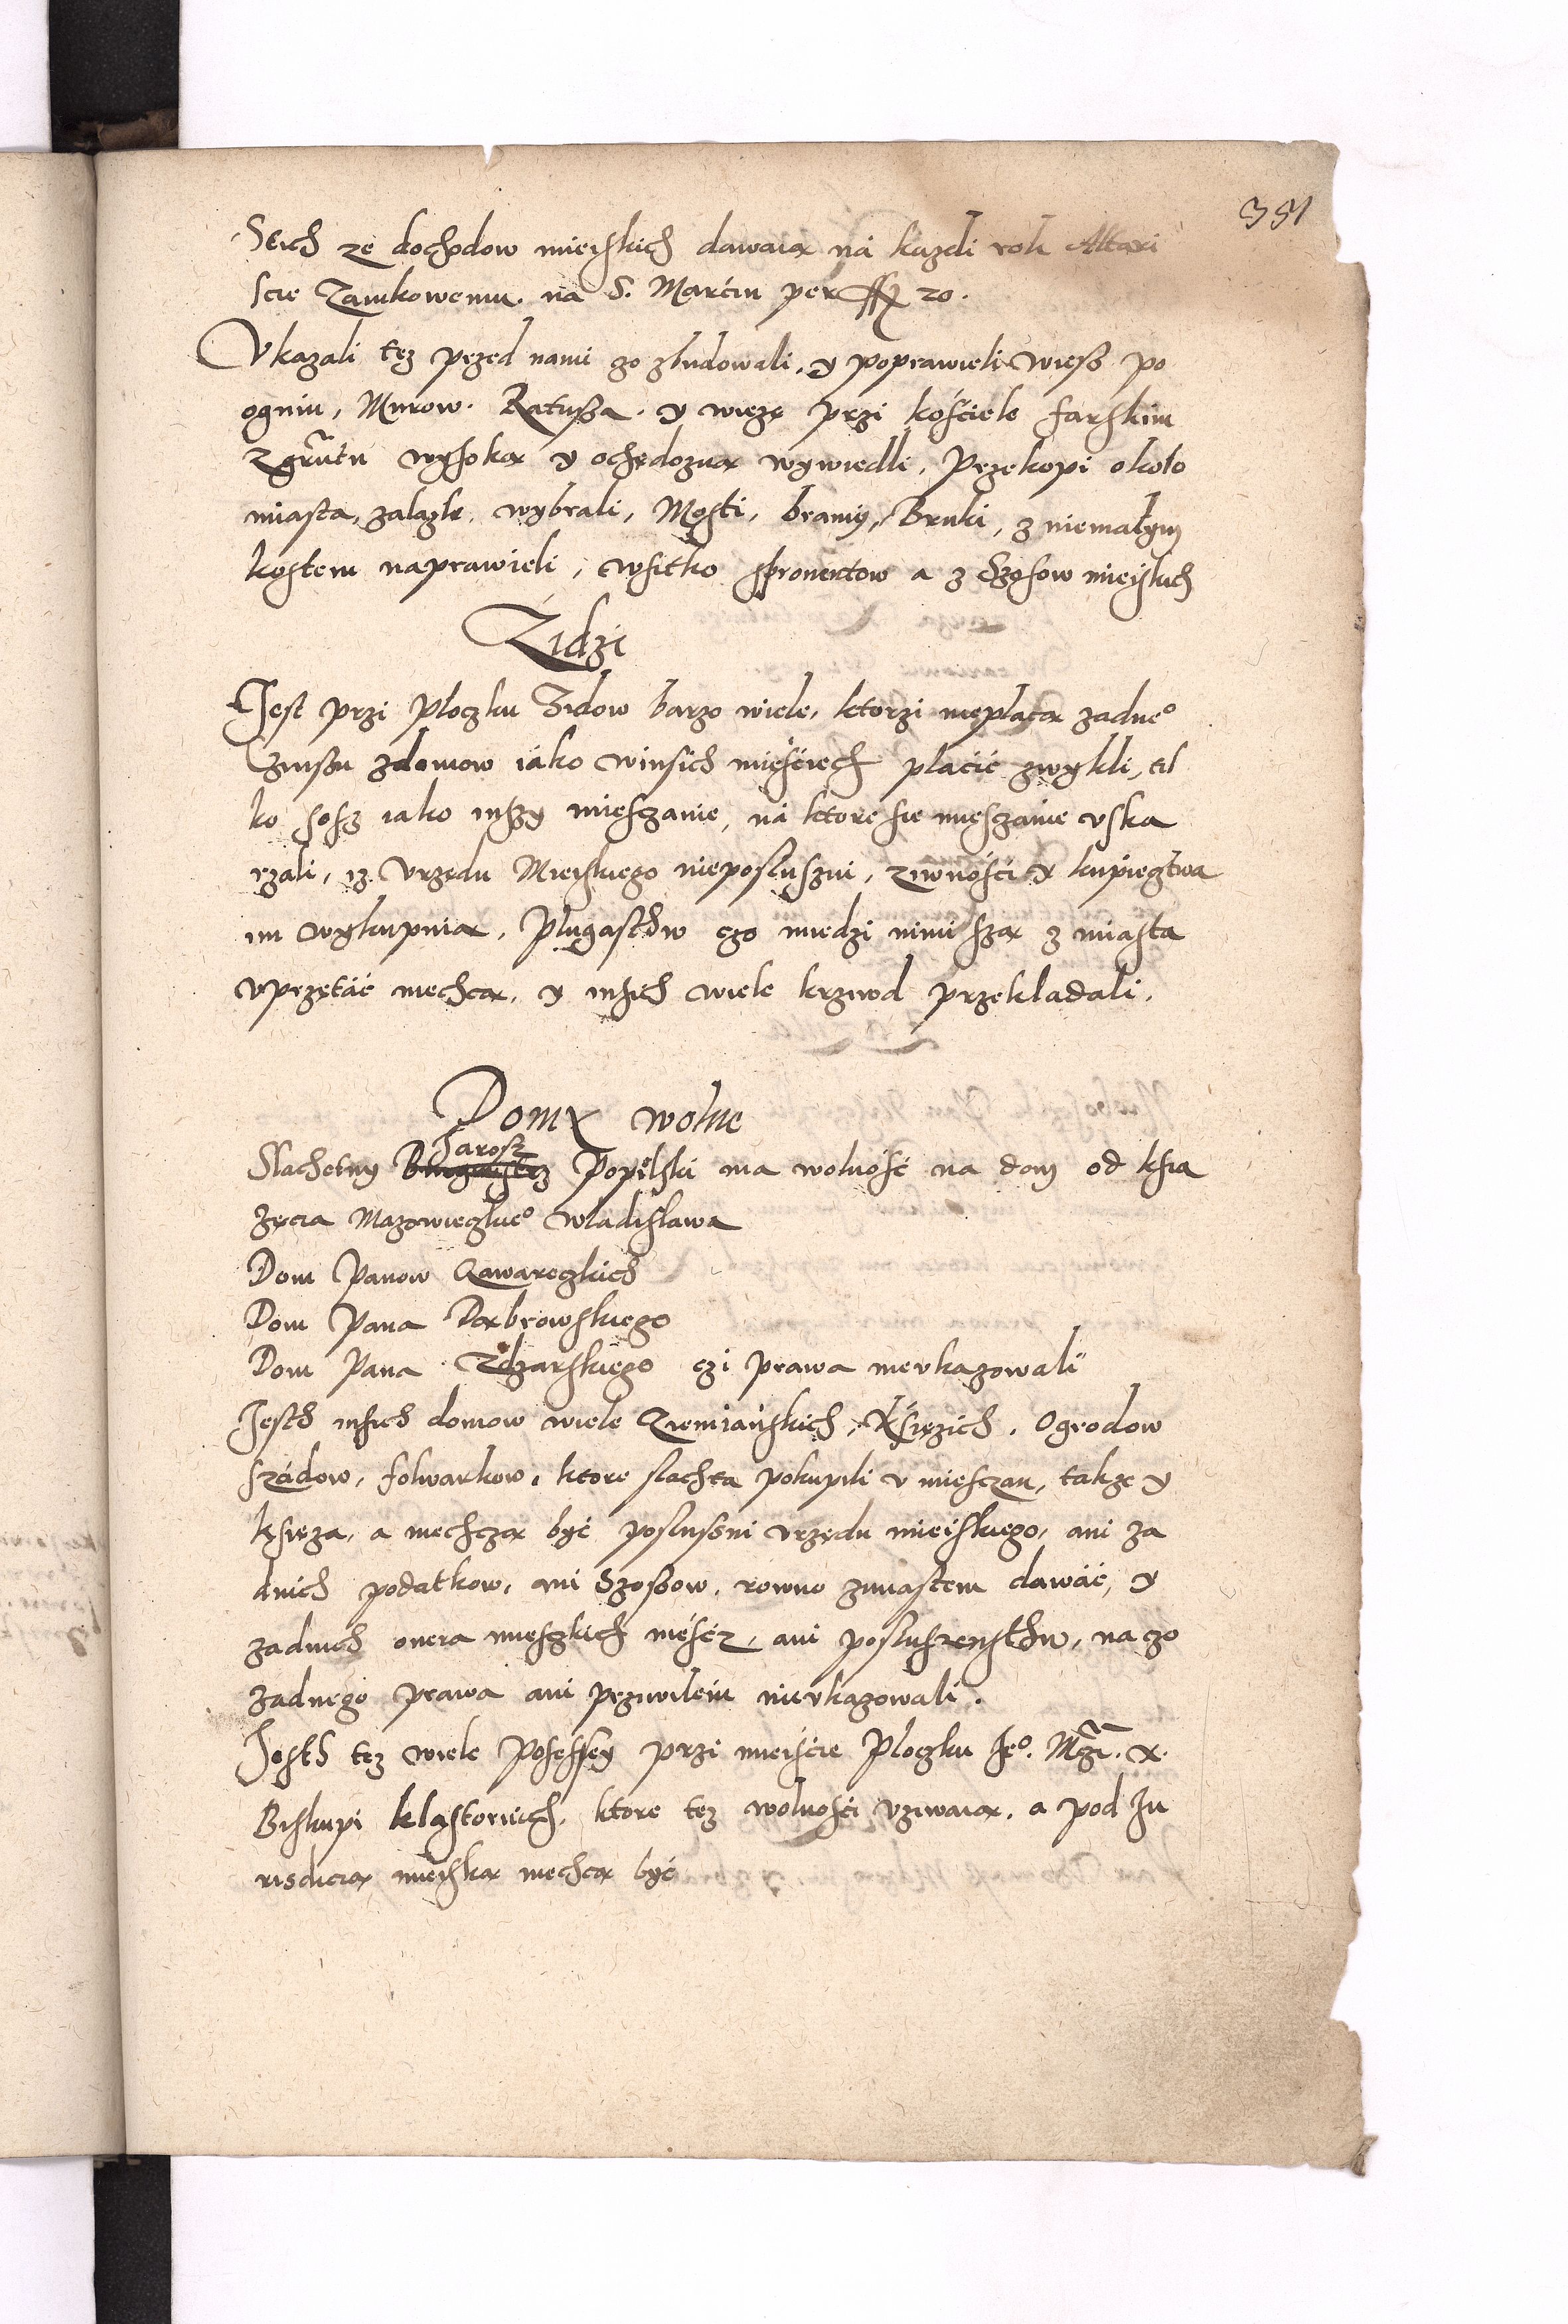 351
Stich ze dochodow mieiskich dawaią ná kazdi rok Altari
scie Zamkowemu. na S. Marćin per ff 20.
Vkazali tez przed nami zo zbudowali, y poprawieli wieß po
ogniu, Murow. Ratußa. y wiezę przi kośćiele farskim
zgrūtu wysoką y ochędozną wywiedli, Przekopi około
miasta, zalazłe, wybrali, Mosti, bramy, Bruki, z niemałym
kostem naprawieli, wsitko sproventow a z Szosow mieiskich
Zidzi
Jest przi Ploczku Zidow barzo wiele, ktorzi nieplacą zadneº
Czinßu zdomow iáko winsich mieśćiech plaćić zwykli, til
ko soß iako inßy miesczanie, ná ktore sie miesczanie uska
rzali, iz Vrzędu Mieiskiego nieposłuszni, ziwnośći y kupieztwa
im wykupuią, Plugasthw czo miedzi nimi szą z miasta
vprzętáć niechcą, y insich wiele krziwd przekladali.
Domy wolne
Slachetny Jarosz Popielski ma wolność na dom od ksią
zęcia Mazowieczkieº Wladislawa
Dom Panow Gawareczkich
Dom Pana Dąbrowskiego
Dom Pana Zdzarskiego czi prawa nieukazowali
Jesth insich domow wiele Ziemiańskich, Xsięzich, Ogrodow
szádow, folwarkow, ktore slachta pokupili u miesczan, takze y
księza, a niechczą być posłußni vrzędu mieiskiego, ani za
dnich podatkow, ani Szoßow, rowno zmiastem dawáć, y
zadnich onera mieszkich nieśćz, ani posluszensthw, na czo
zadnego prawa ani prziwileiu nieukazowali.
Jesth tez wiele Posessey przi mieśćie Ploczku Jeº. Mczi. X.
Biskupi klastornich, ktore tez wolnośći vziwaią, a pod Ju
risdicią mieiską niechcą być